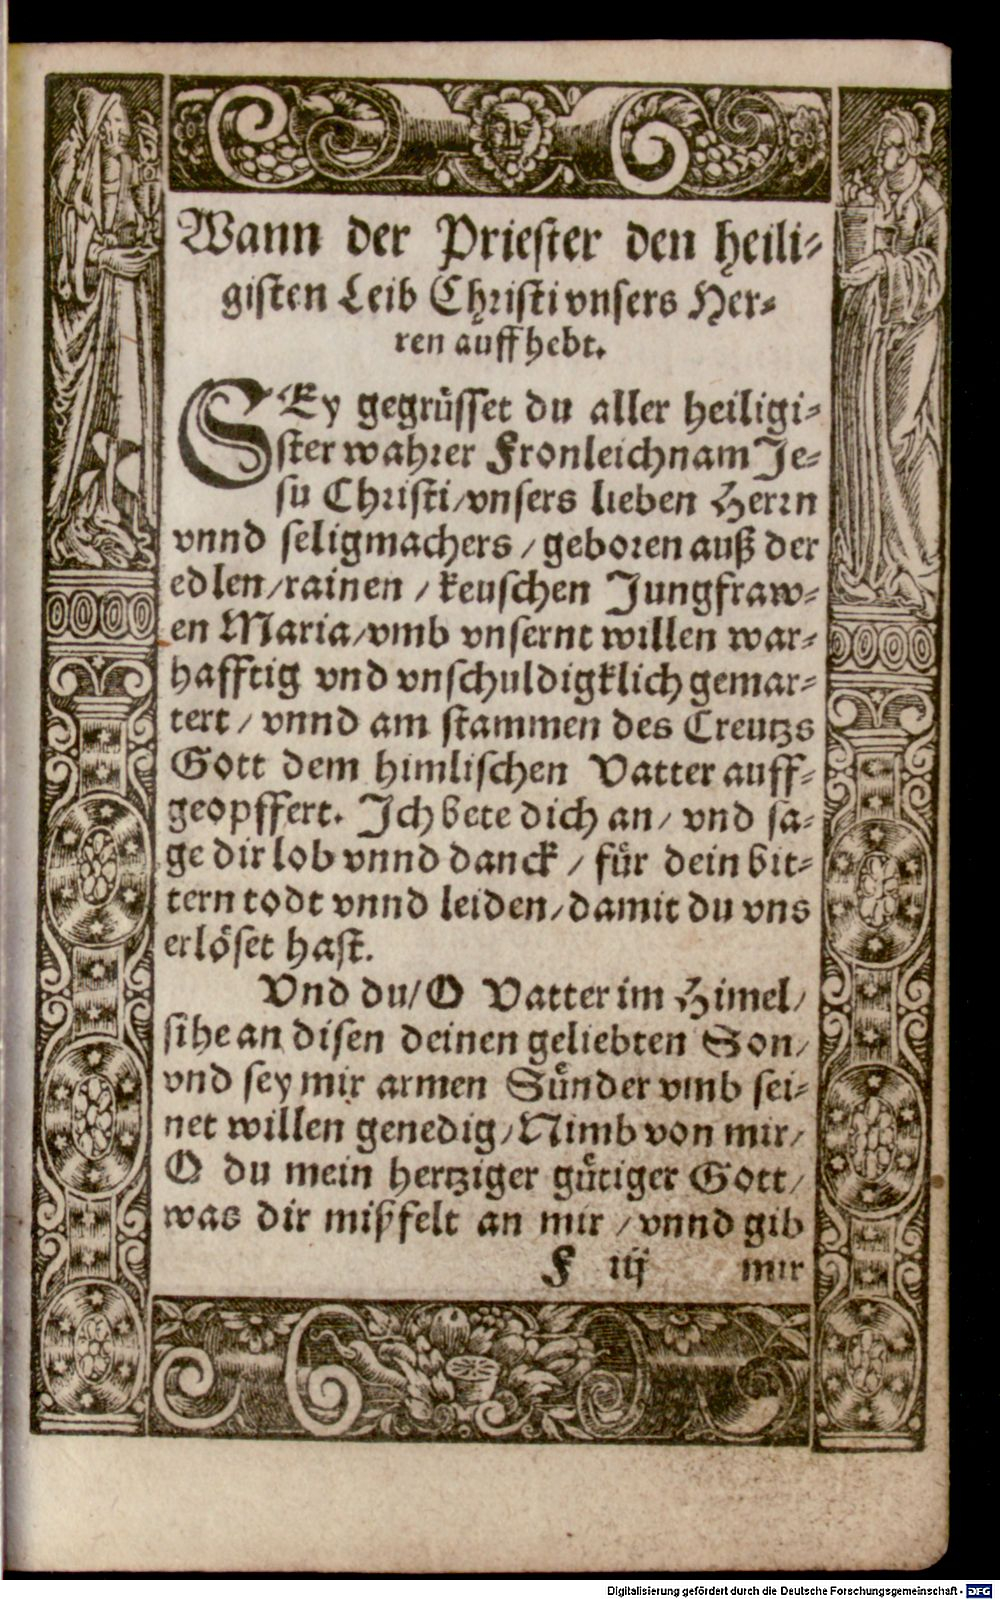 Wann der Priester den heili⸗
gisten Leib Christi vnsers Her⸗
ren auff hebt.
SEy gegrüsset du aller heiligi⸗
ster wahrer Fronleichnam Je⸗
su Christi/vnsers lieben Herrn
vnnd seligmachers/geboren auß der
edlen/rainen/keuschen Jungfraw⸗
en Maria/vmb vnsernt willen war⸗
hafftig vnd vnschuldigklich gemar⸗
tert/vnnd am stammen des Creutzs
Gott dem himlischen Vatter auff⸗
geopffert. Ich bete dich an/vnd sa⸗
ge dir lob vnnd danck/für dein bit⸗
tern todt vnnd leiden/damit du vns
erlöset hast.
Vnd du/O Vatter im Himel/
sihe an disen deinen geliebten Son/
vnd sey mir armen Sünder vmb sei⸗
net willen genedig/Nimb von mir/
O du mein hertziger gütiger Gott/
was dir mißfelt an mir/vnnd gib
F iij mir
Digitalisierung gefördert durch die Deutsche Forschungsgemeinschaft - DFG